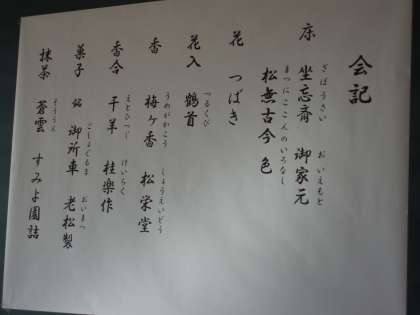 会記
ざぼうさい おいえもと
床 坐忘斎 御家元
まつにここんのいろなし
松無古今色
花 つばき
つるくび
花入 鶴首
うめがかこう しょうえいどう
香 梅ヶ香 松栄堂
えとひつじ けいらく
香合 干羊 桂楽作
ごしょぐるま おいまつ
菓子 銘 御所車 老松製
そううん
抹茶 蒼雲 すみよ園詰